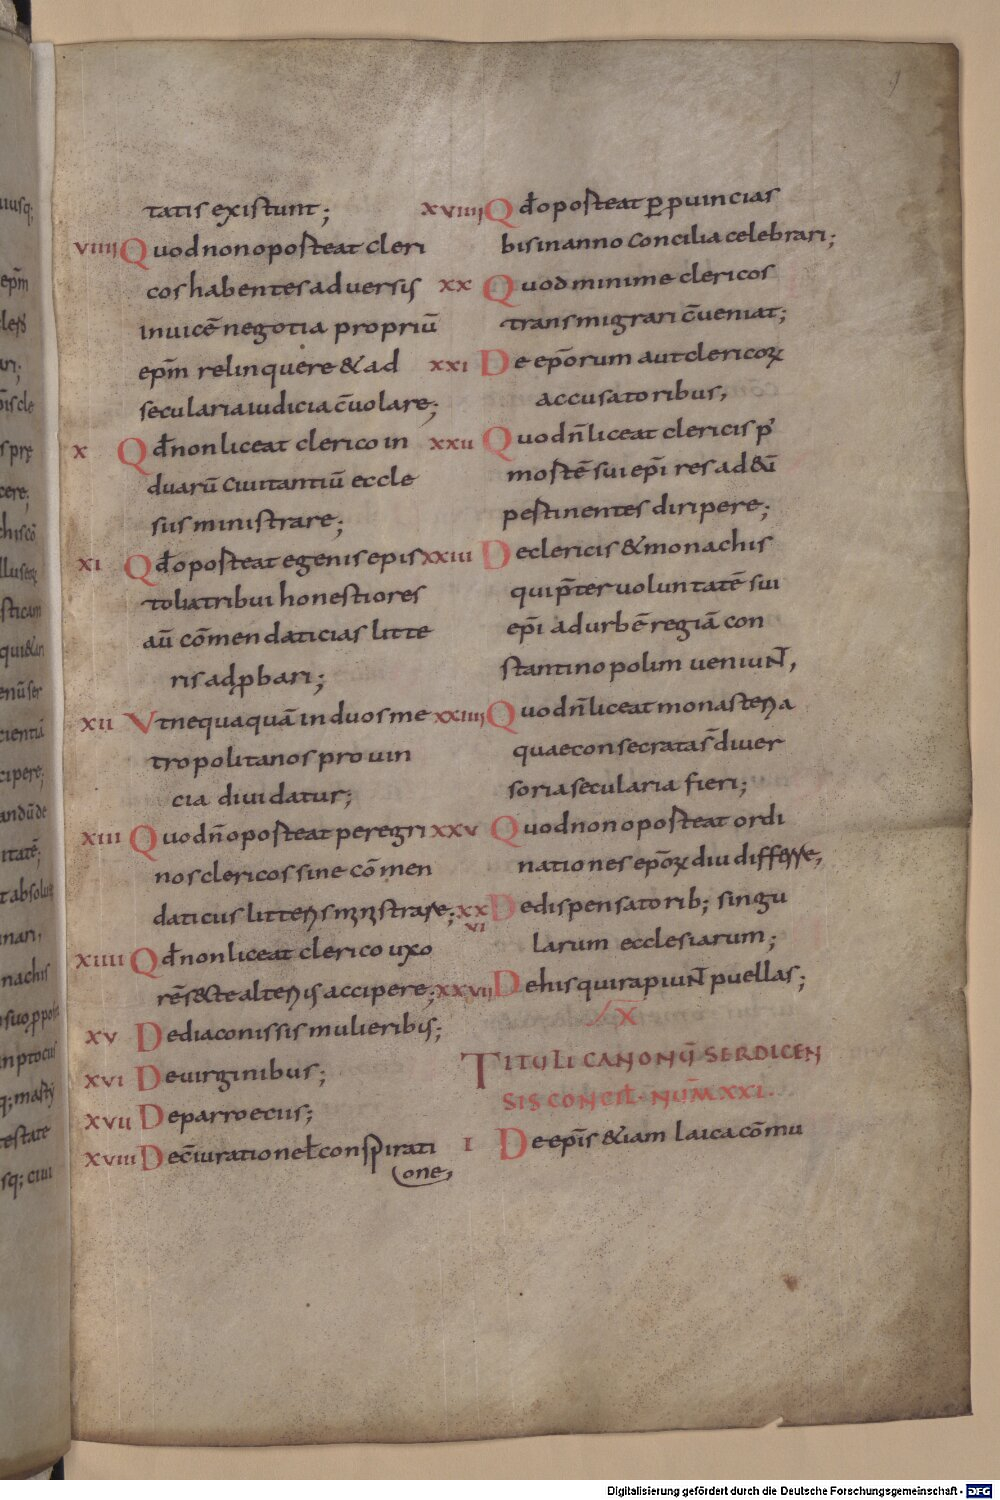 tatis existunt;
VIIII Quod non oposteat cleri
cos habentes adversis
invicē negotia propriū
epm̄ relinquere & ad
secularia iudicia c̄volare;
X Qđ non liceat clerico in
duarū civitantiū eccle
siis ministrare;
XI Qđ oposteat egenis epis
tolia tribui honestiores
aū cōmendaticias litte
ris adꝓbari;
XII Vt nequaquā in duos me
tropolitanos provin
cia dividatur;
XIII Quod n̄ oposteat peregri
nos clericos sine cōmen
daticiis
XIIII Qđ non liceat clerico uxo
rēs & te alteris accipere;
XV De diaconissis mulieribus;
XVI De virginibus;
XVII De parroeciis;
XVIII De c̄iuratione ł conspirati
one;
XVIIII Qđ oposteat ꝑ ꝓvincias
bis in anno concilia celebrari;
XX Quod minime clericos
transmigrari c̄veniat;
XXI De epōrum aut clericoꝝ
accusatoribus,
XXII Quod n̄ liceat clericis p'
mostē sui epī res ad eū
pestinentes diripere;
XXIII De clericis & monachis
qui p̄ter voluntatē sui
epī ad urbē regiā con
stantinopolim veniuN̄,
XXIIII Quod n̄ liceat monasteria
quae consecrata s̄ diver
soria secularia fieri;
XXV Quod non oposteat ordi
nationes epōꝝ diu differre,
XXVI De dispensatorib; singu
larum ecclesiarum;
XXVII De his qui rapiuN̄ puellas;
X
TITULI CANONŪ SERDICEN
SIS CONCIL̄. NUM̄ XXI.
I De epīs & iam laica cōmu
Digitalisierung gefördert durch die Deutsche Forschungsgemeinschaft - DFG